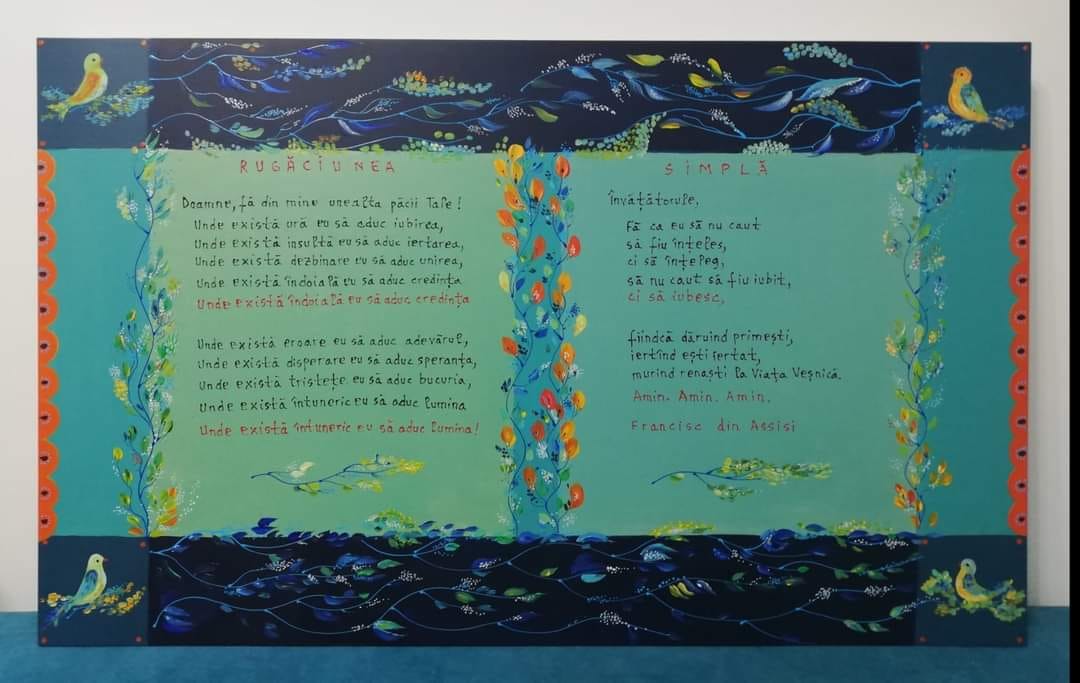 RUGĂCIUNEA
Doamne, fă din mine unealta păcii Tale!
Unde există ură eu să aduc iubirea,
Unde există insultă eu să aduc iertarea,
Unde există dezbinare eu să aduc unirea,
Unde există îndoială eu să aduc credința
Unde există îndoială eu să aduc credința
Unde există eroare eu să aduc adevărul,
Unde există disperare eu să aduc speranța,
Unde există tristețe eu să aduc bucuria,
Unde există întuneric eu să aduc lumina
Unde există întuneric eu să aduc lumina!
SIMPLĂ
Învățătorule,
Fă ca eu să nu caut
să fiu înțeles,
ci să înțeleg,
să nu caut să fiu iubit,
ci să iubesc,
fiindcă dăruind primești,
iertînd ești iertat,
murind renaști la Viața Veșnică.
Amin. Amin. Amin.
Francisc din Assisi